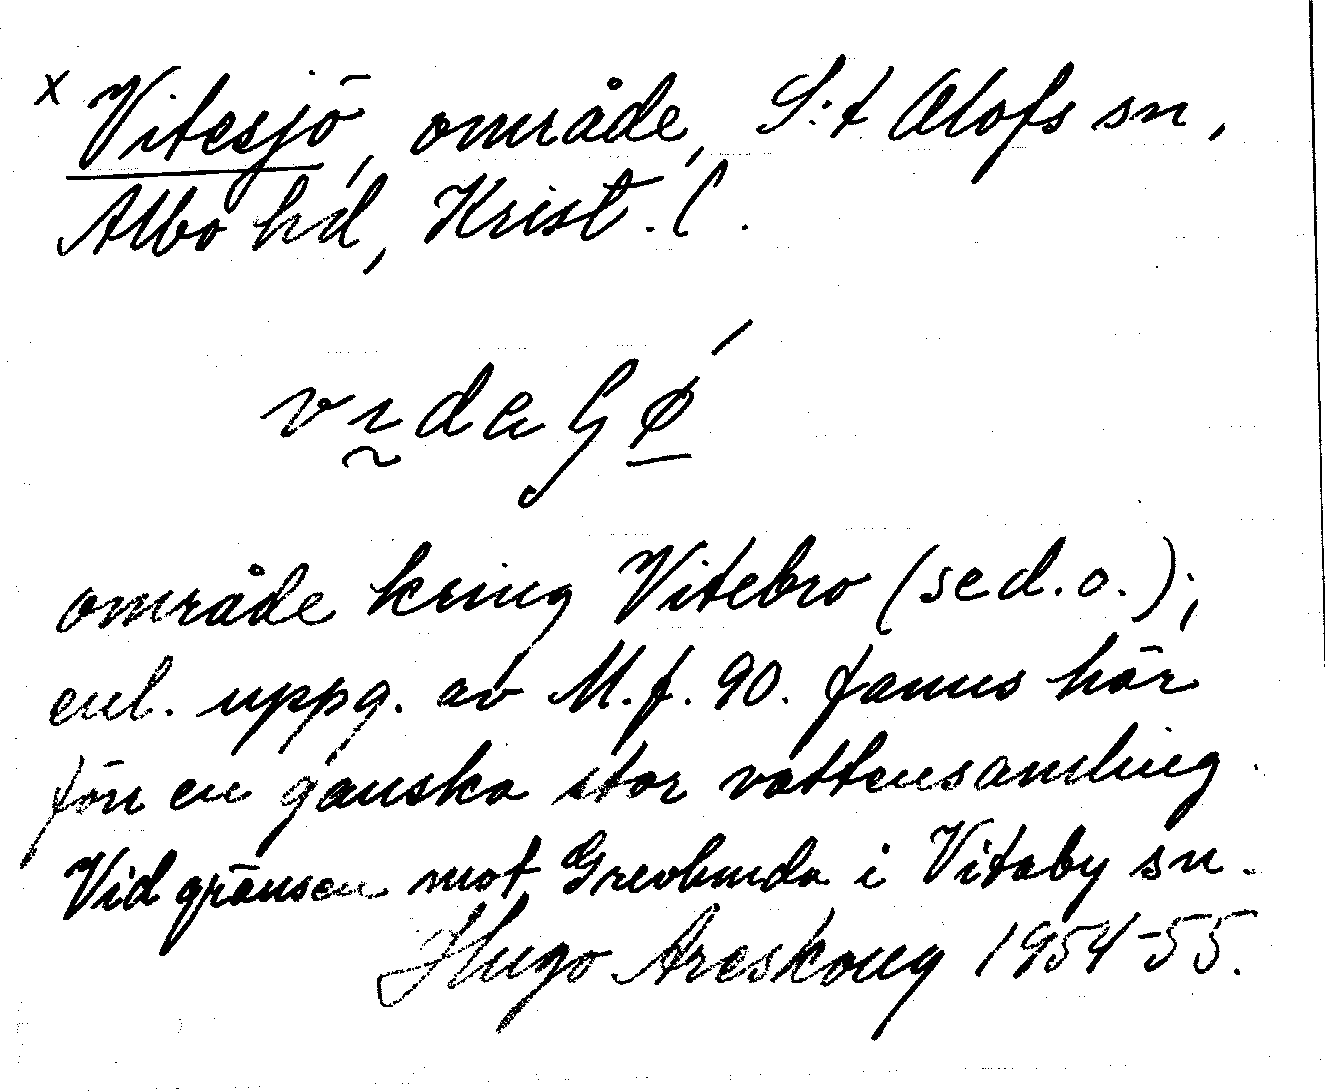 x Vitesjö, område, S:t Olofs sn,
Albo hd, Krist. l.
område kring Vitebro (se d. o.);
enl. uppg. av M. f. 90. fanns här
förr en ganska stor vattensamling.
Vid gränsen mot Grevlunda i Vitaby sn.
Hugo Areskoug 1954-55.